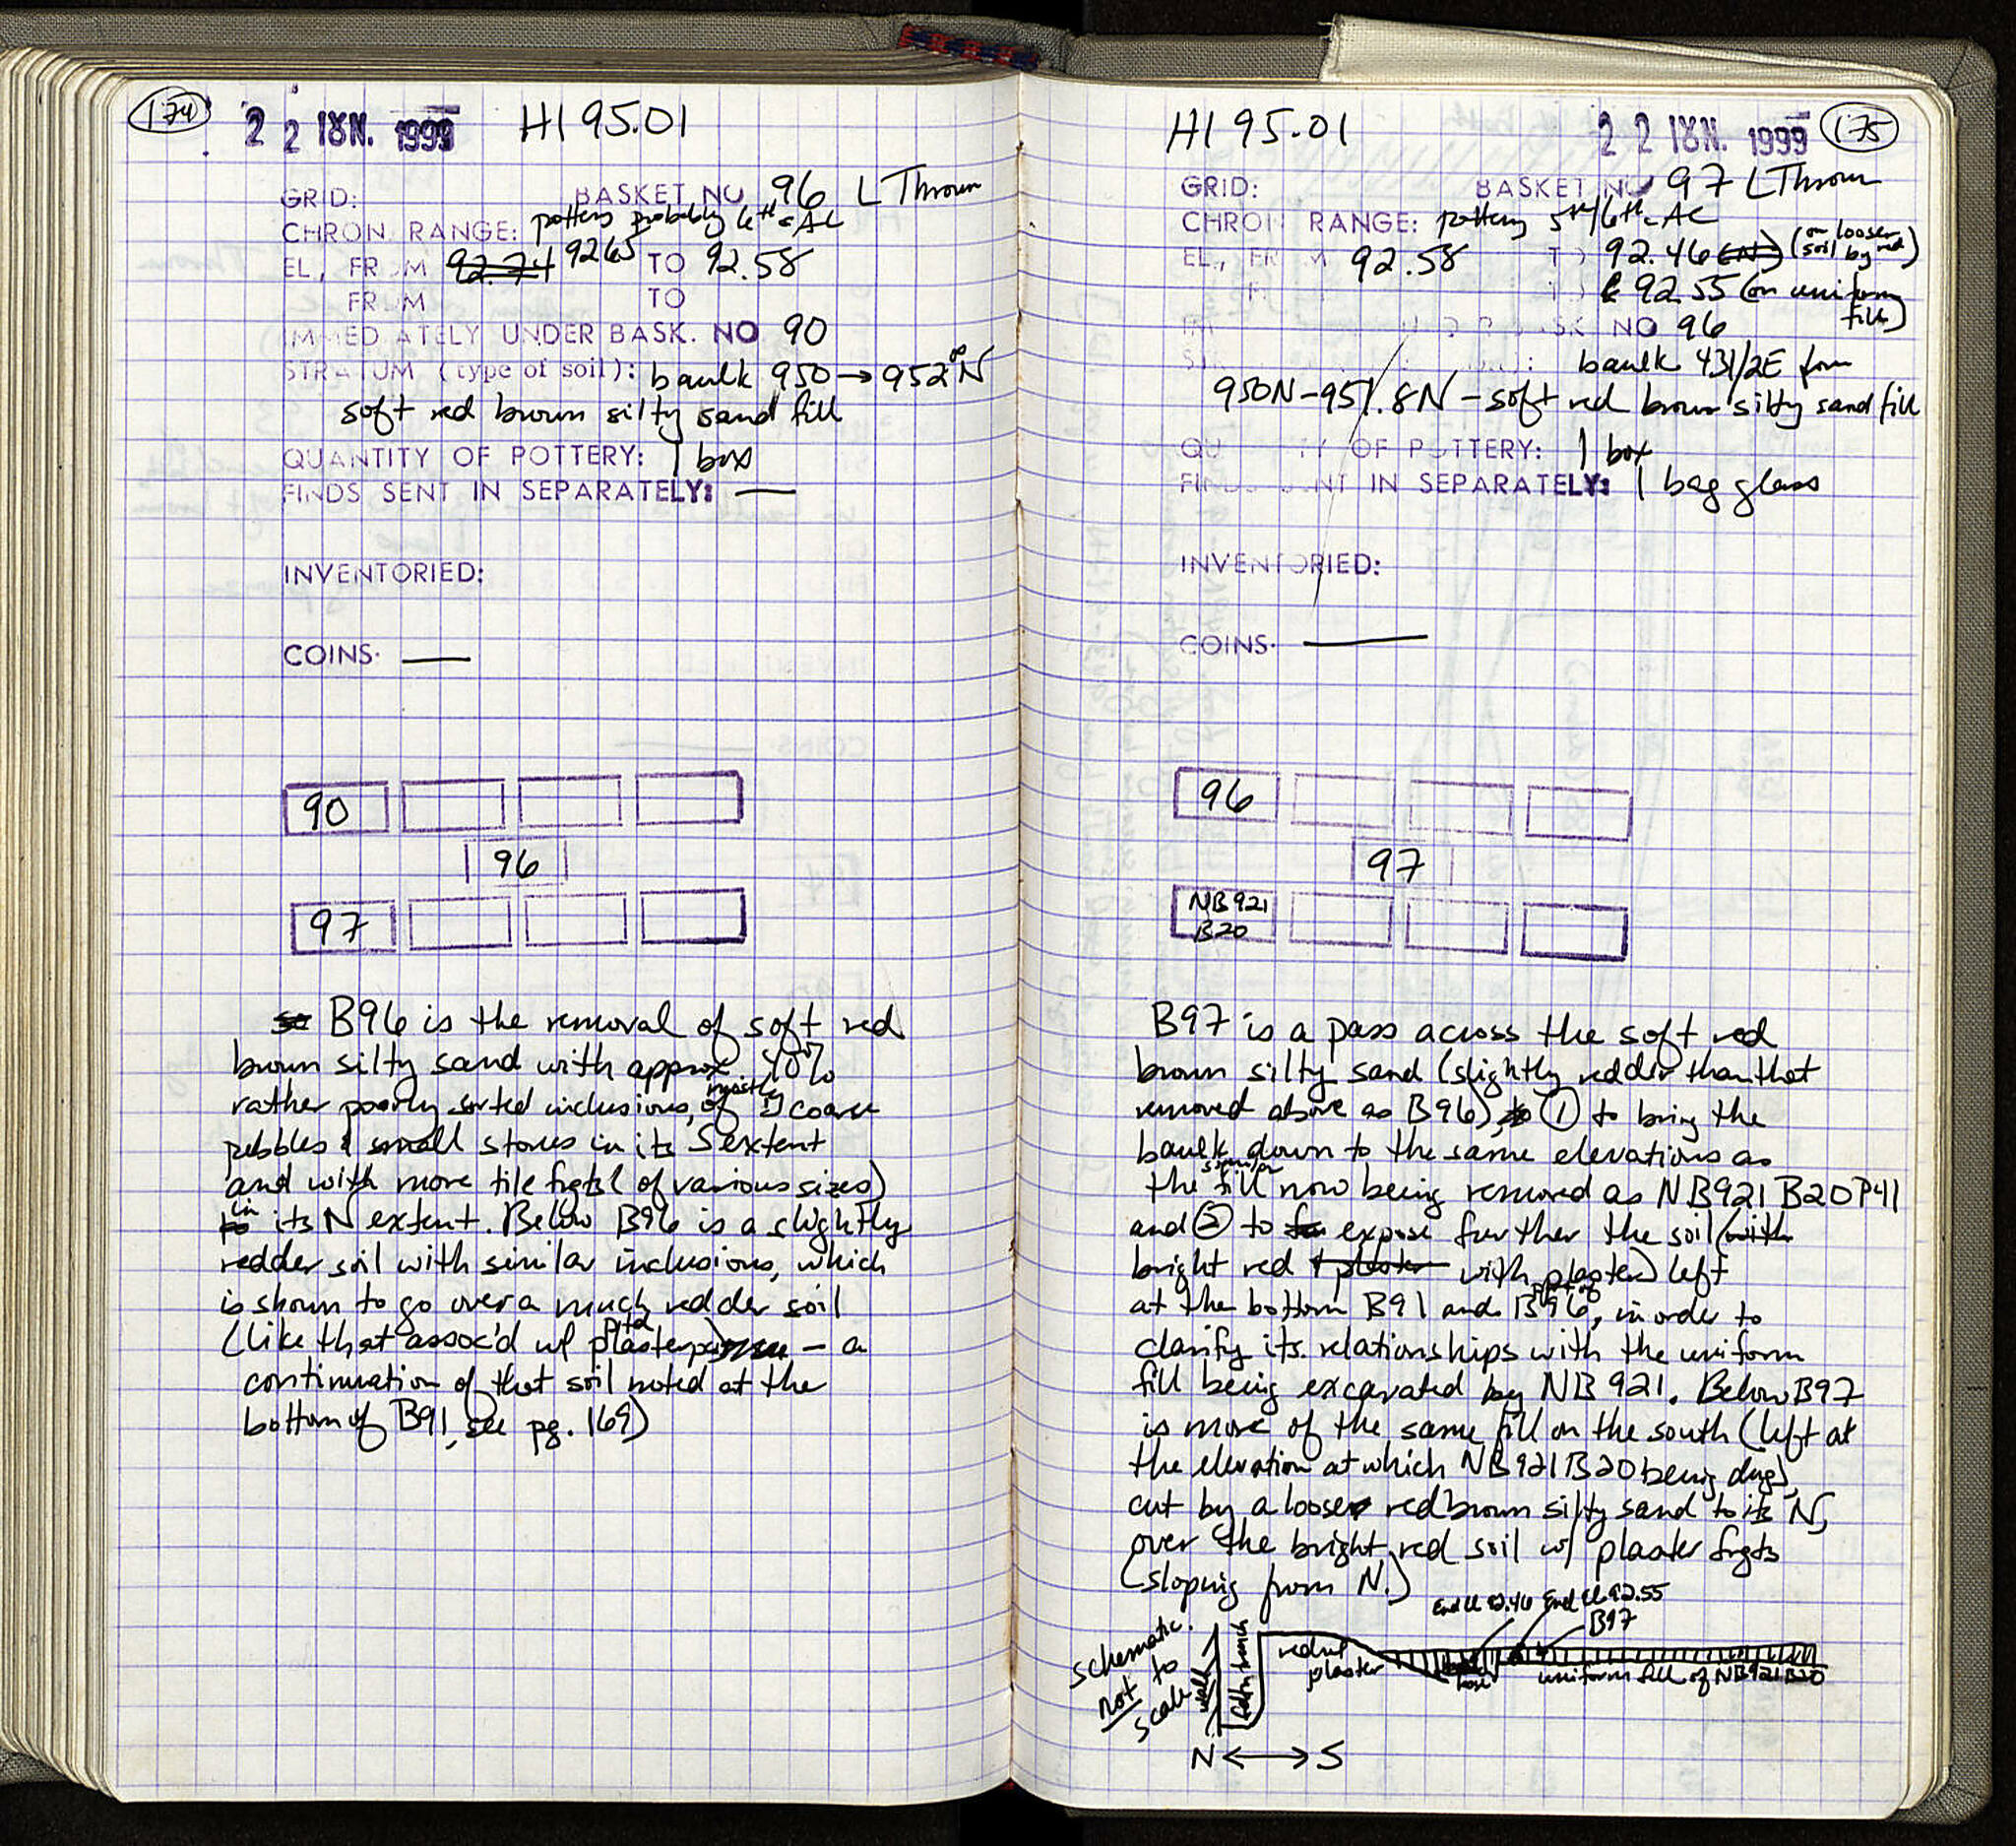 174
22 ΙΟΥΝ. 1999 H1 95.01
GRID: BASKET NO 96 L Thrown
CHRON RANGE: pottery probably 6th c AC
EL., FROM 92.74 92.65 TO 92.58
FROM TO
IMMEDIATELY UNDER BASK. NO 90
STRATUM (type of soil): baulk 950 → 952.00 N
soft red brown silty sand fill
QUANTITY OF POTTERY: 1 box
FINDS SENT IN SEPARATELY: —
INVENTORIED:
COINS: —
90
96
97
B96 is the removal of soft red
brown silty sand with approx 40%
rather poorly sorted inclusions, of mostly coarse
pebbles & small stones in its S extent
and with more tile frgts (of various sizes)
in its N extent. Below B96 is a slightly
redder soil with similar inclusions, which
is shown to go over a much redder soil
(like that assoc'd w/ ptd plaster) — a
continuation of that soil noted at the
bottom of B91, see pg. 169)
H1 95.01 22 ΙΟΥΝ. 1999 175
GRID: BASKET NO 97 L Thrown
CHRON RANGE: pottery 5th/6th c AC
EL., FROM 92.58 TO 92.46 (N) (on looser soil by red)
TO & 92.55 (on uniform fill)
NO 96
baulk 431/2E from
950N-951.8N - soft red brown silty sand fill
QUANTITY OF POTTERY: 1 box
FINDS SENT IN SEPARATELY: 1 bag glass
INVENTORIED:
COINS: —
96
97
NB921
B20
B97 is a pass across the soft red
brown silty sand (slightly redder than that
removed above as B96), to ① to bring the
baulk down to the same elevations as
the similar fill now being removed as NB921 B20 P41
and ② to expose further the soil (with
bright red & plaster with plaster) left
at the bottom B91 and part of B96, in order to
clarify its relationships with the uniform
fill being excavated by NB921. Below B97
is more of the same fill on the south (left at
the elevation at which NB921 B20 being dug),
cut by a looser red brown silty sand to its N,
over the bright red soil w/ plaster frgts
(sloping from N.)
End El 92.46 End El 92.55
B97
schematic.
not to
scale
wall
fdtn trench
red w/
plaster
loose
uniform fill of NB921 B20
N ↔ S